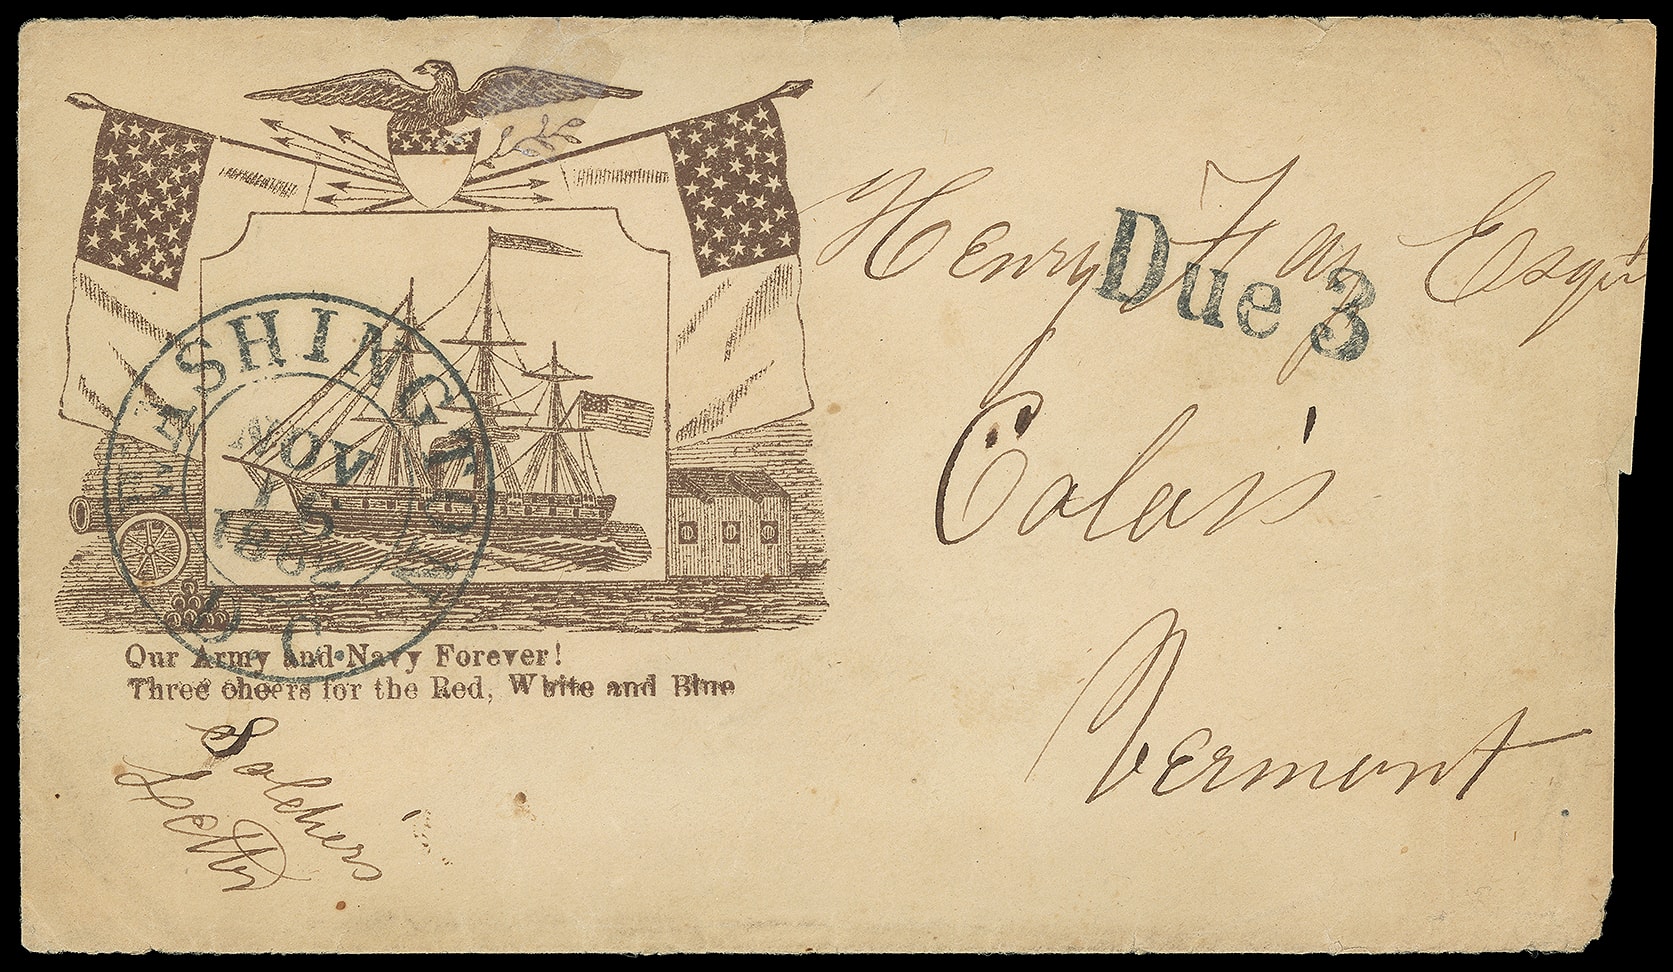 WASHINGTON D.C.
NOV
1862
Our Army and Navy Forever!
Three cheers for the Red, White and Blue
Due 3
Henry Fay Esqr
Calais
Vermont
Soldiers
Letter